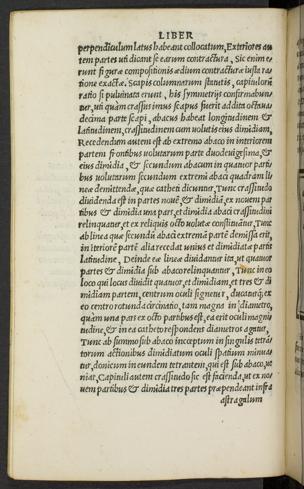 LIBER
perpendiculum latus habeant collocatum, Exteriores au
tem partes uti dicant se earum contractura, Sic enim e
runt figuræ compositionis ædium contracturæ iusta ra
tione exactæ. Scapis columnarum statutis, capitulorũ
ratio si puluinata erunt, his symmetrijs conformabun
tur, uti quàm crassus imus scapus fuerit addita octaua
decima parte scapi, abacus habeat longitudinem &
Latitudinem, crassitudinem cum uolutis eius dimidiam,
Recedendum autem est ab extremo abaco in interiorem
partem frontibus uolutarum parte duodeuigesima, &
eius dimidia, & secundum abacum in quatuor parti=
bus uolutarum secundum extremi abaci quadram li=
neæ demittendæ, quæ catheti dicuntur, Tunc crassitudo
diuidenda est in partes nouẽ & dimidiã, ex nouem par
tibus & dimidia una pars, et dimidia abaci crassitudini
relinquatur, et ex reliquis octo uolutæ constituãtur, Tunc
ab linea quæ secundũ abaci extremã partẽ demissa erit,
in iteriorẽ partẽ alia recedat unius et dimidiatæ partis
latitudine, Deinde eæ lineæ diuidantur ita, ut quatuor
partes & dimidia sub abaco relinquantur, Tunc in eo
loco qui locus diuidit quatuor, et dimidiam, et tres & di
midiam partem, centrum oculi signetur, ducaturq; ex
eo centro rotunda circinatio, tam magna in diametro,
quàm una pars ex octo partibus est, ea erit oculi magni
tudine, & in ea catheto respondens diametros agatur,
Tunc ab summo sub abaco inceptum in singulis tetrã=
torum actionibus dimidiatum oculi spatium minuas
tur, donicum in eundem tetrantem, qui est sub abaco, ue
niat, Capituli autem crassitudo sic est facienda, ut ex no=
uem partibus & dimidia tres partes præpendeant infra
astragalum